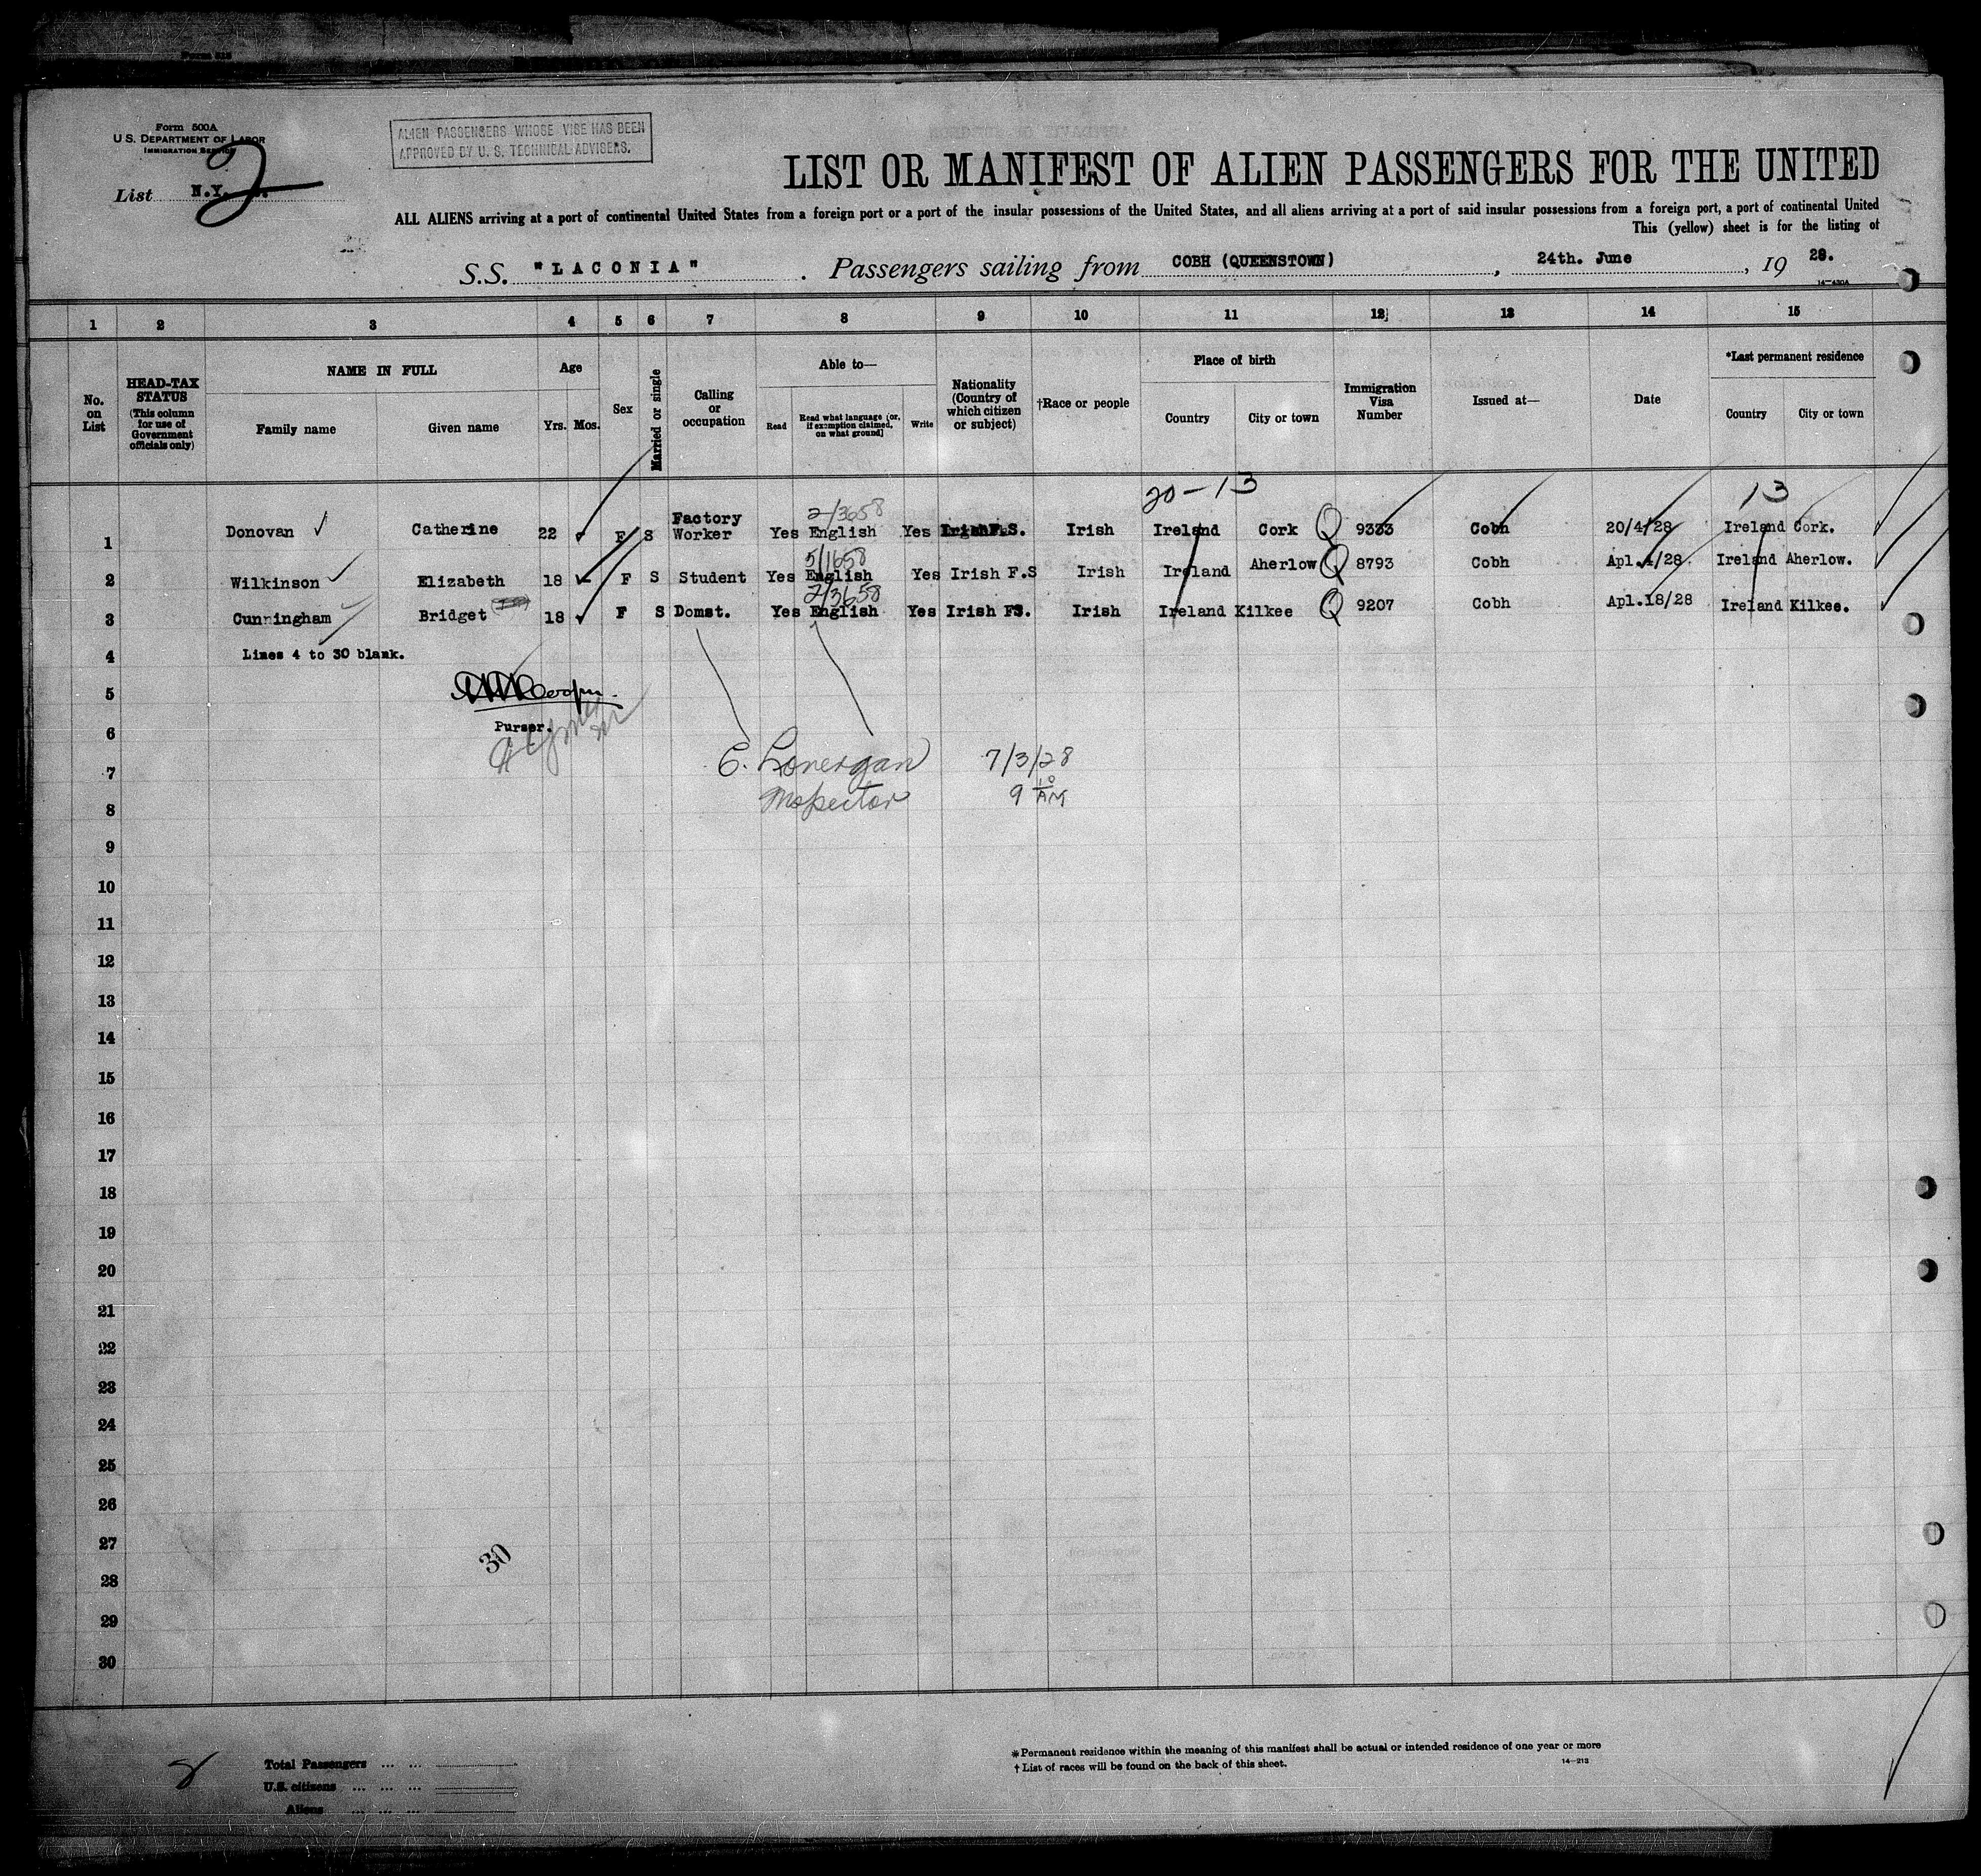 Form 500A
U.S. DEPARTMENT OF LABOR
IMMIGRATION SERVICE
List N.Y. 2
ALIEN PASSENGERS WHOSE VISE HAS BEEN
APPROVED BY U. S. TECHNICAL ADVISERS.
LIST OR MANIFEST OF ALIEN PASSENGERS FOR THE UNITED
ALL ALIENS arriving at a port of continental United States from a foreign port or a port of the insular possessions of the United States, and all aliens arriving at a port of said insular possessions from a foreign port, a port of continental United
This (yellow) sheet is for the listing of
S.S. "LACONIA". Passengers sailing from COBH (QUEENSTOWN), 24th. June, 19 28.
14-430A
1 2 3 4 5 6 7 8 9 10 11 12 13 14 15
No. on List
HEAD-TAX STATUS (This column for use of Government officials only)
NAME IN FULL
Family name Given name
Age
Yrs. Mos.
Sex
Married or single
Calling or occupation
Able to—
Read Read what language [or, if exemption claimed, on what ground] Write
Nationality (Country of which citizen or subject)
†Race or people
Place of birth
Country City or town
Immigration Visa Number
Issued at—
Date
*Last permanent residence
Country City or town
20-13 13
2/3658
1 Donovan Catherine 22 F S Factory Worker Yes English Yes Irish F.S. Irish Ireland Cork Q 9333 Cobh 20/4/28 Ireland Cork.
5/1658
2 Wilkinson Elizabeth 18 F S Student Yes English Yes Irish F.S Irish Ireland Aherlow Q 8793 Cobh Apl.4/28 Ireland Aherlow.
2/3658
3 Cunningham Bridget 18 F S Domst. Yes English Yes Irish FS. Irish Ireland Kilkee Q 9207 Cobh Apl.18/28 Ireland Kilkee.
4 Lines 4 to 30 blank.
5
6 Purser.
7 E. Lonergan 7/3/28
8 Inspector 9 10 AM
9
10
11
12
13
14
15
16
17
18
19
20
21
22
23
24
25
26
27
30
28
29
30
Total Passengers ... ...
U.S. citizens ... ... ...
Aliens ... ... ...
*Permanent residence within the meaning of this manifest shall be actual or intended residence of one year or more
† List of races will be found on the back of this sheet.
14-213